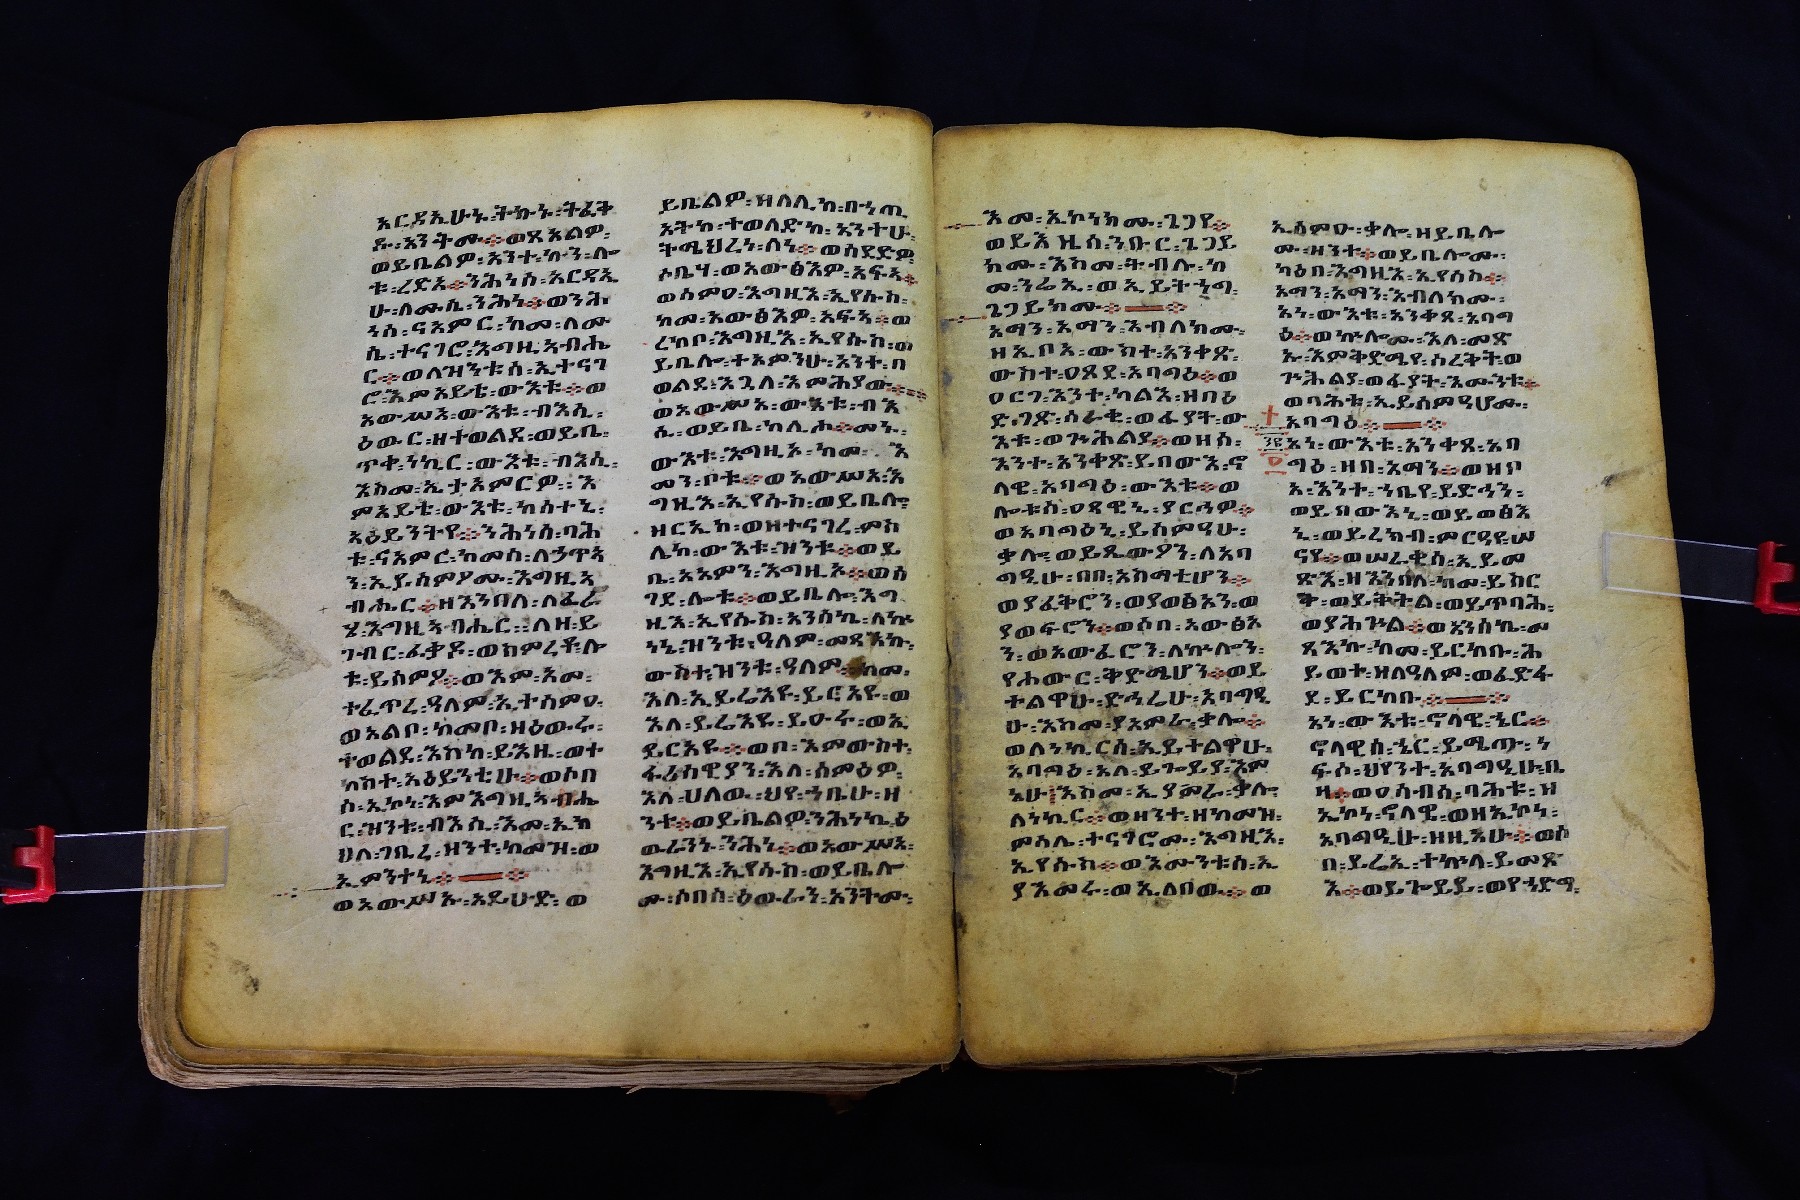 አርዳኢሁኑ፡ትኩኑ፡ትፈቅ
ዱ፡አንትሙ፨ወጸአልዎ፡
ወይቤልዎ፡አንተ፡ኩን፡ሎ
ቱ፡ረድአ፨ንሕነሰ፡አርዳኢ
ሁ፡ለሙሴ፡ንሕነ፨ወንሕ
ነሰ፡ናአምር፡ከመ፡ለሙ
ሴ፡ተናገሮ፡እግዚአብሔ
ር፨ወለዝንቱሰ፡ኢተናገ
ሮ፡እምአይቴ፡ውእቱ፨ወ
አውሥአ፡ውእቱ፡ብእሲ፡
ዕውር፡ዘተወልደ፡ወይቤ፡
ጥቀ፡ነኪር፡ውእቱ፡ብእሲ፡
እስመ፡ኢታአምርዎ፡፡እ
ምአይቴ፡ውእቱ፡ከሰተኒ፡
አዕይንትየ፨ንሕነሰ፡ባሕ
ቱ፡ናአምር፡ከመሰ፡ለኃጥአ
ን፡ኢይሰምዖሙ፡እግዚአ
ብሔር፨ዘእንበለ፡ለፈራ
ሄ፡እግዚአብሔር፡፡ለዘ፡ይ
ገብር፡ፈቃዶ፡ወከምረቶ፡ሎ
ቱ፡ይሰምዖ፨ወእም፡አመ፡
ተፈጥረ፡ዓለም፡ኢተሰምዐ፡
ወአልቦ፡ከመቦ፡ዘዕውሩ፡
ተወልደ፡እስከ፡ይእዜ፡ወተ
ከስተ፡አዕይንቲሁ፨ወሶበ
ሰ፡ኢኮነ፡እምእግዚአብሔ
ር፡ዝንቱ፡ብእሲ፡እመ፡ኢክ
ህለ፡ገቢረ፡ዘንተ፡ከመዝ፡ወ
ኢምንተኒ፨
ወአውሥኡ፡አይሁድ፡ወ
ይቤልዎ፡ዝለሊከ፡በኀጢ
አትከ፡ተወለድከ፡አንተሁ፡
ትሜህረነ፡ለነ፨ወሰደድዎ
ሶቤሃ፡ወአውፅእዎ፡አፍአ፨
ወሰምዐ፡እግዚእ፡ኢየሱስ፡
ከመ፡አውፅእዎ፡አፍአ፨ወ
ረከቦ፡እግዚእ፡ኢየሱስ፡ወ
ይቤሎ፡ተአምንሁ፡አንተ፡በ
ወልደ፡እጓለ፡እምሕያው፨
ወአውሥአ፡ውእቱ፡ብእ
ሲ፡ወይቤ፡
ውእቱ፡እግዚኦ፡ከመ፡እእ
መን፡ቦቱ፨ወአውሥአ፡እ
ግዚእ፡ኢየሱስ፡ወይቤሎ፡
ዘርኢከ፡ወዘተናገረ፡ምስ
ሌከ፡ውእቱ፡ዝንቱ፨ወይ
ቤ፡አአምን፡እግዚኦ፨ወሰ
ገደ፡ሎቱ፨ወይቤሎ፡እግ
ዚእ፡ኢየሱስ፡አንሰኬ፡ለኵ
ነኔ፡ዝንቱ፡ዓለም፡መጻእኩ፡
ውስተ፡ዝንቱ፡ዓለም፡ከመ፡
እለ፡ኢይሬእዩ፡ይርአዩ፡ወ
እለ፡ይሬእዩ፡ይዑሩ፡ወኢ
ይርአዩ፨ወቦ፡እምውስተ፡
ፈሪሳዊያን፡እለ፡ሰምዕዎ፡
እለ፡ሀለዉ፡ህየ፡ኀቤሁ፡ዘ
ንተ፨ወይቤልዎ፡ንሕነኬ፡ዕ
ዉራንኑ፡ንሕነ፨ወአውሥአ፡
እግዚእ፡ኢየሱስ፡ወይቤሎ
ሙ፡ሶበሰ፡ዕዉራን፡አንትሙ፡
እመ፡ኢኮነክሙ፡ጌጋየ፨
ወይእዜሰ፡ንቡር፡ጌጋይ
ክሙ፡እስመ፡ትብሉ፡ከ
መ፡ንሬኢ፡ወኢይትኀግ፡
ጌጋይክሙ፨
አማን፡አማን፡እብለክሙ፡
ዘኢቦአ፡ውስተ፡አንቀጽ፡
ውስተ፡ዐጸደ፡አባግዕ፨ወ
ዐርገ፡እንተ፡ካልእ፡ዘበዕ
ድ፡ገጽ፡ሰራቂ፡ወፈያት፡ው
እቱ፡ወጕሕልያ፨ወዘሰ፡
እንተ፡አንቀጽ፡ይበውእ፡ኖ
ላዊ፡አባግዕ፡ውእቱ፨ወ
ሎቱሰ፡ዐጸዊኒ፡ያርኅዎ፨
ወአባግዕኒ፡ይሰምዓሁ፡
ቃሎ፡ወይጼውዖን፡ለአባ
ግዒሁ፡በበ፡አስማቲሆን፨
ወያፈቅሮን፡ወያወፅአን፡ወ
ያወፍሮን፨ወሶበ፡አውፅአ
ን፡ወአውፈሮን፡ለኵሎን፡
የሐውር፡ቅድሜሆን፨ወይ
ተልዋሁ፡ድኅሬሁ፡አባግዒ
ሁ፡እስመ፡ያአምራ፡ቃሎ፨
ወለነኪርሰ፡ኢይተልዋሁ፡
አባግዕ፡አላ፡ይጐይያ፡እም
ኔሁ፡እስመ፡ኢያአምራ፡ቃሎ፡
ለነኪር፨ወዘንተ፡ዘከመዝ፡
ምሳሌ፡ተናገሮሙ፡እግዚእ፡
ኢየሱስ፨ወእሙንቱሰ፡ኢ
ያእመሩ፡ወኢለበዉ፨ወ
ኢፅምዑ፡ቃሎ፡ዘይቤሎ
ሙ፡ዘንተ፨ወይቤሎሙ፡
ካዕበ፡እግዚእ፡ኢየሱስ፨
አማን፡አማን፡እብለክሙ፡
አነ፡ውእቱ፡አንቀጸ፡አባግ
ዕ፨ወኵሎሙ፡እለ፡መጽ
ኡ፡እምቅድሜየ፡ሰረቅት፡ወ
ጕሕልያ፡ወፈያት፡እሙንቱ፨
ወባሕቱ፡ኢይሰምዓሆሙ፡
አባግዕ፨
አነ፡ውእቱ፡አንቀጸ፡አባ
ግዕ፡ዘበ፡አማን፨ወዘቦ
አ፡እንተ፡ኀቤየ፡ይድኅን፡
ወይበውእኒ፡ወይወፅእ
ኒ፡ወይረክብ፡ምርዓየ፡ሠ
ናየ፨ወሠረቂሰ፡ኢይመ
ጽእ፡ዘእንበለ፡ከመ፡ይስር
ቅ፡ወይቅትል፡ወይጥባሕ፡
ወያሕጕል፨ወአንሰኬ፡መ
ጻእኩ፡ከመ፡ይርከቡ፡ሕ
ይወተ፡ዘለዓለም፡ወፈድፋ
ደ፡ይርከቡ፨
አነ፡ውእቱ፡ኖላዊ፡ኄር፨
ኖላዊሰ፡ኄር፡ይሜጡ፡ነ
ፍሶ፡ህየንተ፡አባግዒሁ፡ቤ
ዛ፨ወዐሳብሰ፡ባሕቱ፡ዘ
ኢኮነ፡ኖላዊ፡ወዘኢኮነ፡
አባግዒሁ፡ዘዚአሁ፨ወሶ
በ፡ይሬኢ፡ተኵላ፡ይመጽ
እ፨ወይጐይይ፡ወየኀድግ፡